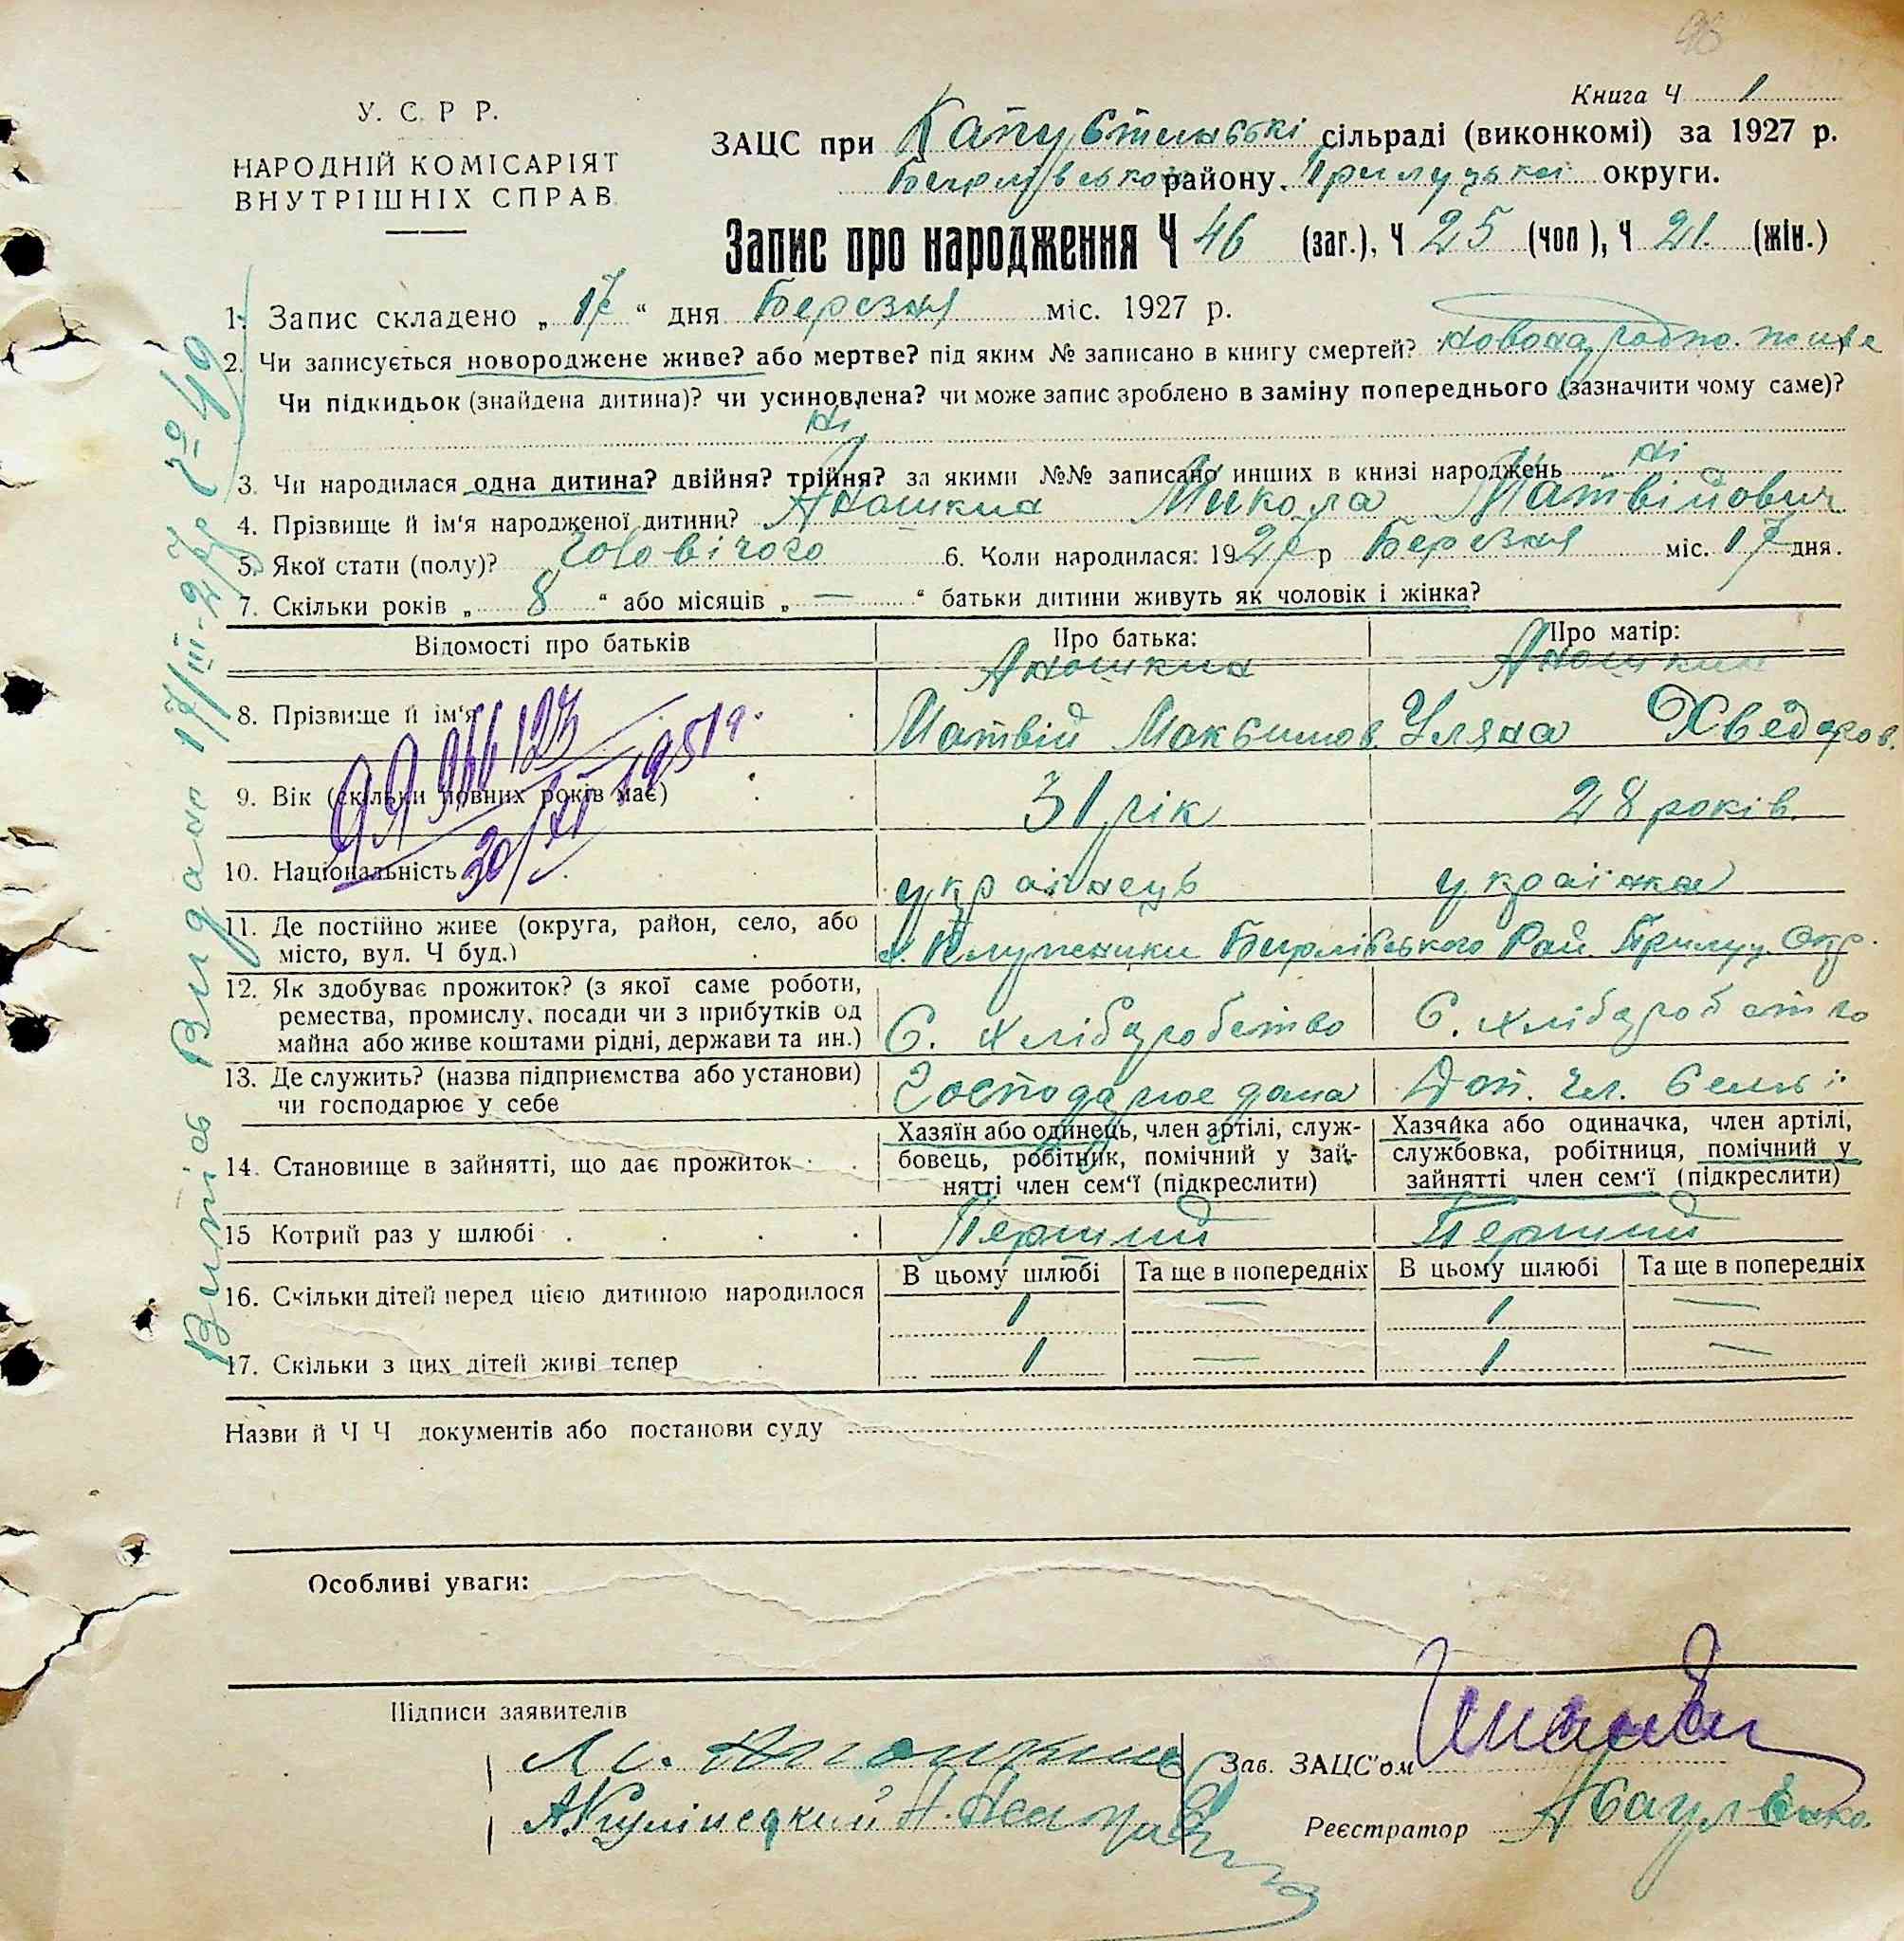 Книга Ч 1
У. С. Р. Р.
НАРОДНІЙ КОМІСАРІЯТ
ВНУТРІШНІХ СПРАВ
ЗАЦС при Капустинській сільраді (виконкомі) за 1927 р.
району, Прилуцької округи.
Запис про народження Ч 46 (заг.), Ч 25 (чол), Ч 21. (жін.)
1. Запис складено „ 17 “ дня Березня міс. 1927 р.
2. Чи записується новороджене живе? або мертве? під яким № записано в книгу смертей? живе
Чи підкидьок (знайдена дитина)? чи усиновлена? чи може запис зроблено в заміну попереднього (зазначити чому саме)?
ні
3. Чи народилася одна дитина? двійня? трійня? за якими №№ записано инших в книзі народжень ні
4. Прізвище й ім'я народженої дитини? Аношкин Микола Матвійович
5. Якої стати (полу)? чоловічого 6. Коли народилася: 1927 р Березня міс. 17 дня.
7. Скільки років „ 8 “ або місяців „ — “ батьки дитини живуть як чоловік і жінка?
Відомості про батьків Про батька: Про матір:
Аношкин Аношкин
8. Прізвище й ім'я Матвій Максимов. Уляна Хведоров.
9. Вік (скільки повних років має) 31 рік 28 років.
10. Національність українець українка
11. Де постійно живе (округа, район, село, або
місто, вул. Ч буд.) Рай. Прилуц. Окр.
12. Як здобуває прожиток? (з якої саме роботи,
ремества, промислу, посади чи з прибутків од
майна або живе коштами рідні, держави та ин.) С. хліборобство С. хліборобство
13. Де служить? (назва підприємства або установи)
чи господарює у себе Господарює дома Доп. чл. семьї
14. Становище в зайнятті, що дає прожиток
Хазяїн або одинець, член артілі, служ-
бовець, робітник, помічний у зай-
нятті член сем'ї (підкреслити)
Хазяйка або одиначка, член артілі,
службовка, робітниця, помічний у
зайнятті член сем'ї (підкреслити)
15 Котрий раз у шлюбі Перший Перший
В цьому шлюбі Та ще в попередніх В цьому шлюбі Та ще в попередніх
16. Скільки дітей перед цією дитиною народилося 1 — 1 —
17. Скільки з цих дітей живі тепер 1 — 1 —
Назви й Ч Ч документів або постанови суду
Особливі уваги:
Підписи заявителів
Зав. ЗАЦС'ом
Реєстратор
Витяг Видан 17/III-27 р. № 49
30/XI 1951 г.